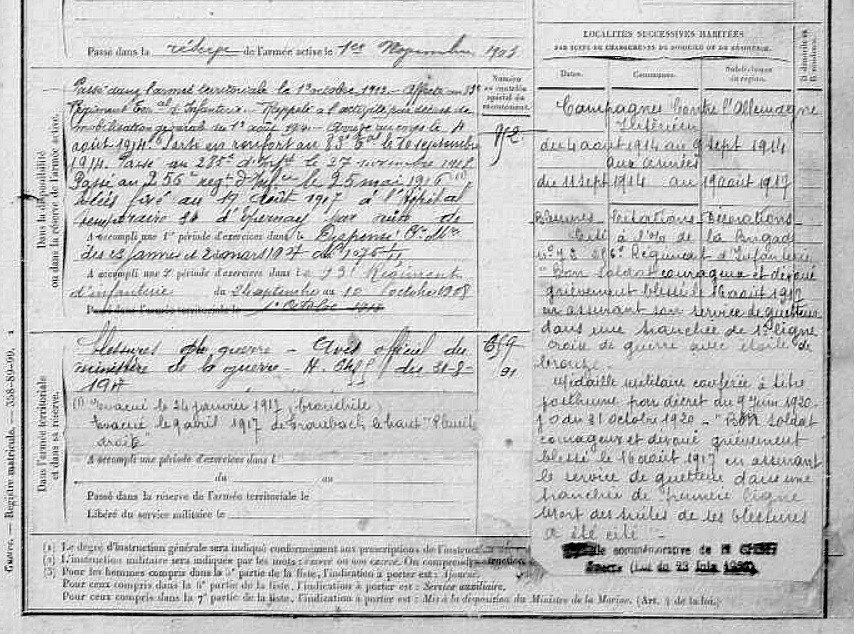 Passé dans la réserve de l'armée active le 1er Novembre 190
Dans la disponibilité
ou dans la réserve de l'armée active.
Passé dans l'armée territoriale le 1er octobre 1912 - Affecté au 83e
Régiment Ter al d'Infanterie - Rappelé à l'activité par décret de
mobilisation générale du 1er août 1914 - Arrivé au corps le 4
août 1914. Parti en renfort au 83e le 10 septembre
1914. Passé au 285e d'Inf le 27 novembre
Passé au 256e régt d'Inf le 25 mai 1916 (1)
Décès fixé au 19 août 1917 à l'Hôpital
temporaire d'Epernay par suite de
A accompli une 1re période d'exercices dans le Dispensé
des 23 janvier et 2 mars 1907
A accompli une 2e période d'exercices dans le 73e Régiment
d'infanterie du 24 septembre au 10 octobre 1908
Passé dans l'armée territoriale le 1er Octobre
Numéro
au contrôle
spécial du
recrutement.
912
Dans l'armée territoriale
et dans sa réserve.
blessures de guerre - Avis officiel du
ministre de la guerre - H. du 31-8-
1917
(1) évacué le 24 janvier 1917, bronchite
évacué le 9 avril 1917 de le haut
droite"
A accompli une période d'exercices dans l
du au
Passé dans la réserve de l'armée territoriale le
Libéré du service militaire le
LOCALITÉS SUCCESSIVES HABITÉES
PAR SUITE DE CHANGEMENTS DE DOMICILE OU DE RÉSIDENCE.
Dates.
Communes.
Subdivisions
de région.
D domicile ou
R résidence.
Campagnes Contre l'Allemagne
Intérieur
du 4 août 1914 au 9 sept 1914
aux armées
du 11 sept 1914 au 19 août 1917
Blessures Citations Décorations
Cité à l'o/o de la Brigade
n° 73 Régiment d'Infanterie
"Bon Soldat courageux et dévoué
grièvement blessé le 16 août 1917
en assurant son service de guetteur
dans une tranchée de 1re ligne
croix de guerre avec étoile de
bronze.
Médaille militaire conférée à titre
posthume par décret du 9 Juin 1920.
JO du 31 octobre 1920 - "Bon soldat
courageux et dévoué grièvement
blessé le 16 août 1917 en assurant
le service de guetteur dans une
tranchée de première ligne
Mort des suites de ses blessures
a été cité.
commémorative de
(Loi du 23 Juin 1920)
(1) Le degré d'instruction générale sera indiqué conformément aux prescriptions de l'instruct
(2) L'instruction militaire sera indiquée par les mots : exercé ou non exercé. On comprendra
(3) Pour les hommes compris dans la 5e partie de la liste, l'indication à porter est : Ajourné.
Pour ceux compris dans la 6e partie de la liste, l'indication à porter est : Service auxiliaire.
Pour ceux compris dans la 7e partie de la liste, l'indication à porter est : Mis à la disposition du Ministre de la Marine. (Art. 4 de la loi.)
Guerre. — Registre matricule. — 358-89-90.